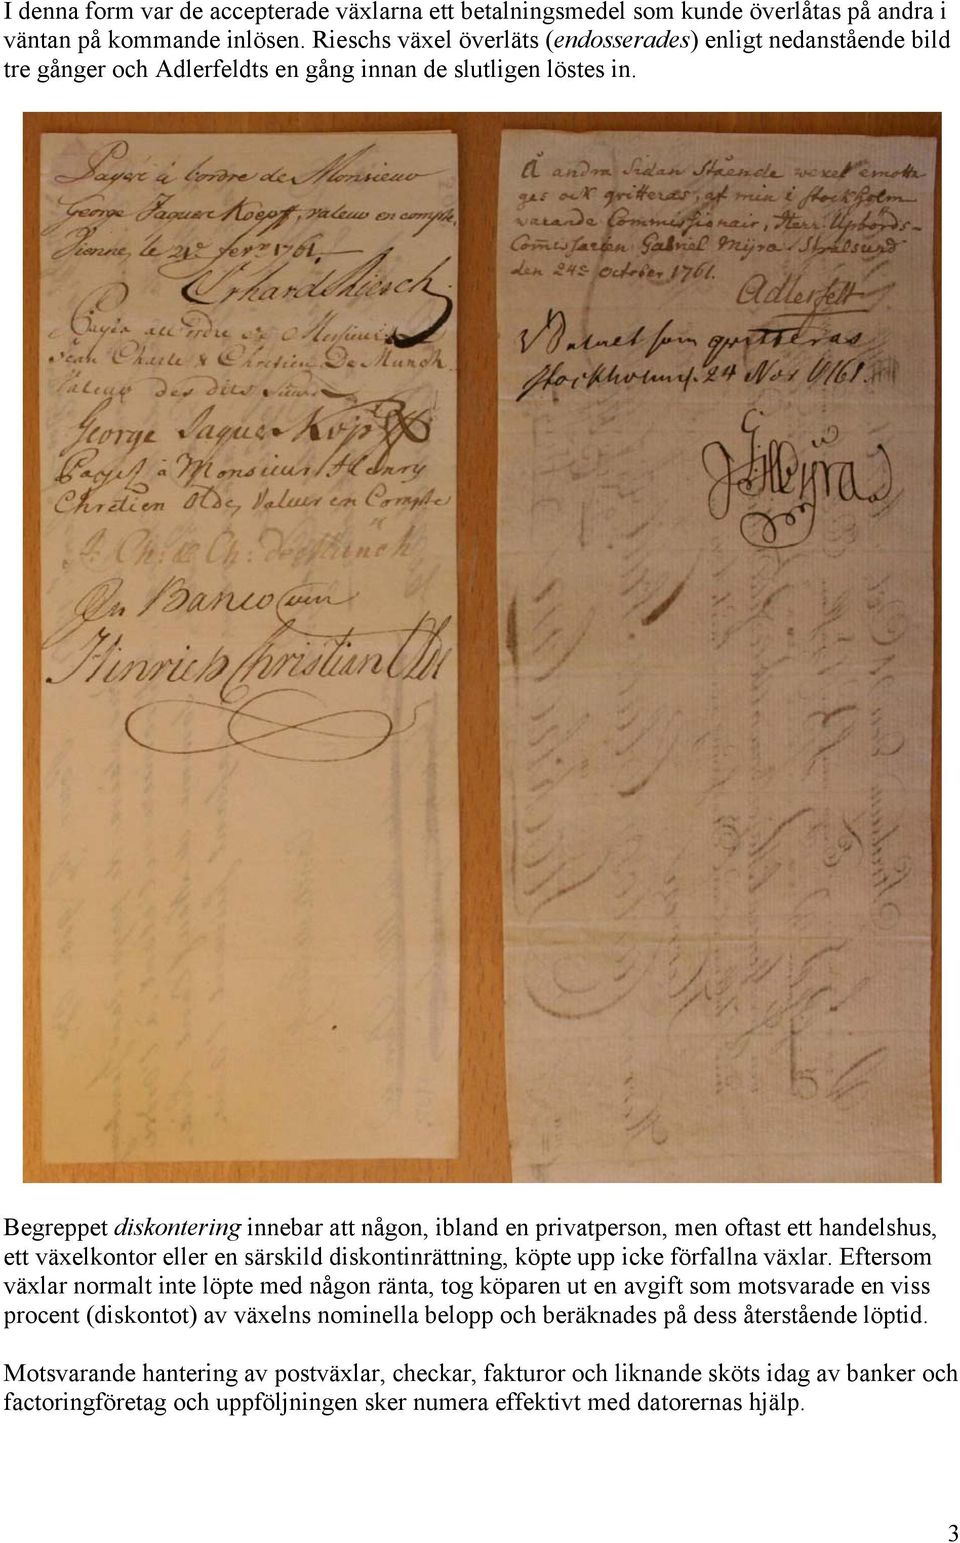 I denna form var de accepterade växlarna ett betalningsmedel som kunde överlåtas på andra i
väntan på kommande inlösen. Rieschs växel överläts (endosserades) enligt nedanstående bild
tre gånger och Adlerfeldts en gång innan de slutligen löstes in.
Payéz à l'ordre de Monsieur
George Jaques Koepff, valeur en compte.
Vienne, le 21e fevr 1761.
Erhard Riesch
Payéz à l'ordre de Messieurs
Jean Charle & Chretien De Munch
Valeur des dits Sieurs
George Jaques Köpff
Payés à Monsieur Henry
Chretien Olde, Valeur en Compte
J: Ch: & Ch: de Münch
In Banco
Hinrich Christian Olde
Å andra Sidan Stående wexel emotta
ges ock qvitteras, af min i Stockholm
warande Commissionair, Herr Upbörds-
Commissarien Gabriel Mÿra. Stralsund
den 24: October 1761.
Adlerfelt
Valuet som qvitteras
Stockholm. 24 Nov 1761.
G
Myra
Begreppet diskontering innebar att någon, ibland en privatperson, men oftast ett handelshus,
ett växelkontor eller en särskild diskontinrättning, köpte upp icke förfallna växlar. Eftersom
växlar normalt inte löpte med någon ränta, tog köparen ut en avgift som motsvarade en viss
procent (diskontot) av växelns nominella belopp och beräknades på dess återstående löptid.
Motsvarande hantering av postväxlar, checkar, fakturor och liknande sköts idag av banker och
factoringföretag och uppföljningen sker numera effektivt med datorernas hjälp.
3